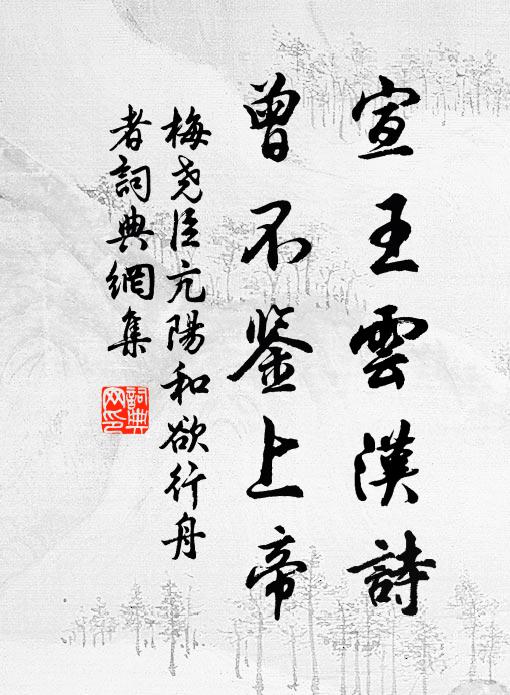 宣王雲漢詩
曾不鉴上帝
梅尧臣亢陽和欲行舟
者詞典網集
詞典网印